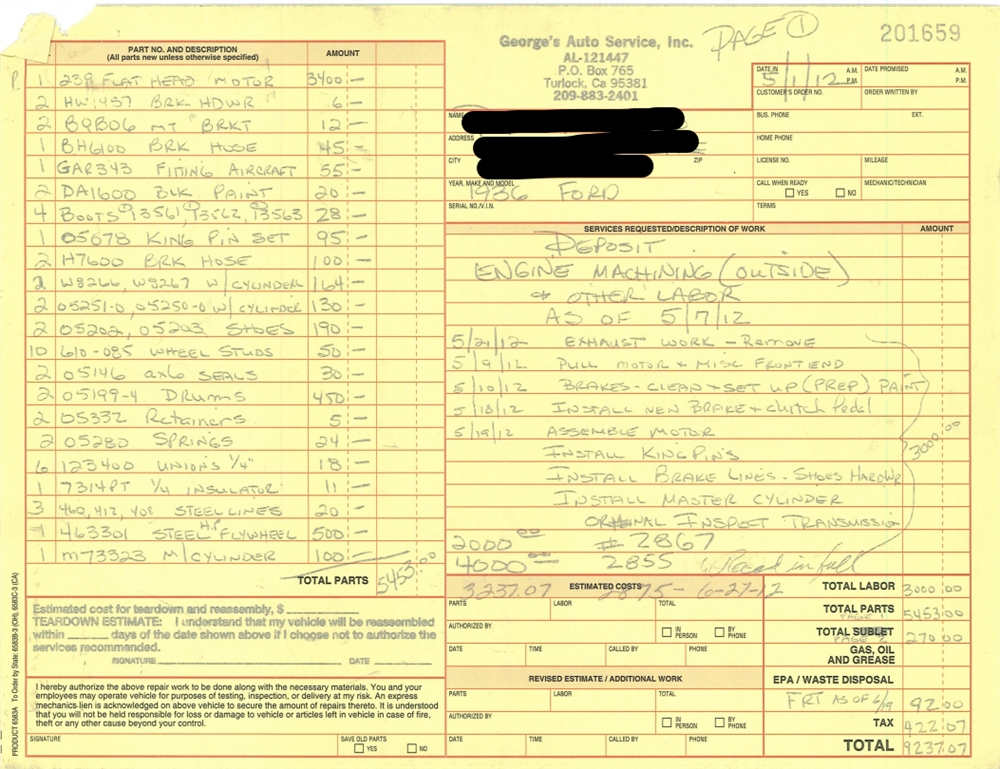 George's Auto Service, Inc.
AL-121447
P.O. Box 765
Turlock, Ca 95381
209-883-2401
PAGE 1
201659
PART NO. AND DESCRIPTION
(All parts new unless otherwise specified)
AMOUNT
1 239 FLAT HEAD MOTOR 3400 —
2 HW1457 BRK HDWR 6 —
2 B9B06 MT BRKT 12 —
1 BH6100 BRK HOSE 45 —
1 GAR343 FITING AIRCRAFT 55 —
2 DA1600 BLK PAINT 20 —
4 BOOTS 13561, 13562, 13563 28 —
1 05078 KING PIN SET 95 —
2 H7600 BRK HOSE 100 —
2 W8266, W8267 W/CYLINDER 164 —
2 05251-0, 05250-0 W/CYLINDER 130 —
2 05202, 05203 SHOES 190 —
10 610-085 WHEEL STUDS 50 —
2 05146 axle SEALS 30 —
2 05199-4 DRUMS 450 —
2 05332 Retainers 5 —
2 05280 SPRINGS 24 —
6 123400 UNION'S 1/4" 18 —
1 7314PT 1/4 INSULATOR 11 —
3 460, 412, 408 STEEL LINES 20 —
1 463301 STEEL H.P. FLYWHEEL 500 —
1 M73323 M/CYLINDER 100 —
TOTAL PARTS 5453.00
Estimated cost for teardown and reassembly, $
TEARDOWN ESTIMATE: I understand that my vehicle will be reassembled
within ______ days of the date shown above if I choose not to authorize the
services recommended.
SIGNATURE DATE
I hereby authorize the above repair work to be done along with the necessary materials. You and your
employees may operate vehicle for purposes of testing, inspection, or delivery at my risk. An express
mechanics lien is acknowledged on above vehicle to secure the amount of repairs thereto. It is understood
that you will not be held responsible for loss or damage to vehicle or articles left in vehicle in case of fire,
theft or any other cause beyond your control.
SIGNATURE SAVE OLD PARTS
YES NO
PRODUCT 6583A To Order by State: 6583B-3 (OH), 6583C-3 (CA)
DATE IN 5/1/12 A.M. P.M.
DATE PROMISED A.M. P.M.
CUSTOMER'S ORDER NO. ORDER WRITTEN BY
NAME BUS. PHONE EXT.
ADDRESS HOME PHONE
CITY ZIP LICENSE NO. MILEAGE
YEAR, MAKE AND MODEL 1936 FORD
CALL WHEN READY YES NO MECHANIC/TECHNICIAN
SERIAL NO./V.I.N. TERMS
SERVICES REQUESTED/DESCRIPTION OF WORK AMOUNT
DEPOSIT
ENGINE MACHINING (OUTSIDE)
& OTHER LABOR
AS OF 5/7/12
5/21/12 EXHAUST WORK - Remove
5/9/12 PULL MOTOR & MISC FRONT END
5/10/12 BRAKES - CLEAN & SET UP (PREP) PAINT
5/18/12 INSTALL NEW BRAKE & Clutch Pedal
5/19/12 ASSEMBLE MOTOR
3000 00
INSTALL KING PINS
INSTALL BRAKE LINES - SHOES HARDWR
INSTALL MASTER CYLINDER
INSPECT TRANSMISSION
2000 00 # 2867
4000 00 2855 Paid in full
3237.07 2875 - 6-27-12
ESTIMATED COSTS
PARTS LABOR TOTAL
AUTHORIZED BY IN PERSON BY PHONE
DATE TIME CALLED BY PHONE
REVISED ESTIMATE / ADDITIONAL WORK
PARTS LABOR TOTAL
AUTHORIZED BY IN PERSON BY PHONE
DATE TIME CALLED BY PHONE
TOTAL LABOR 3000.00
TOTAL PARTS 5453.00
PAGE 1
TOTAL SUBLET 270.00
PAGE 2
GAS, OIL
AND GREASE
EPA / WASTE DISPOSAL
FRT AS OF 6/19 92.00
TAX 422.07
TOTAL 9237.07